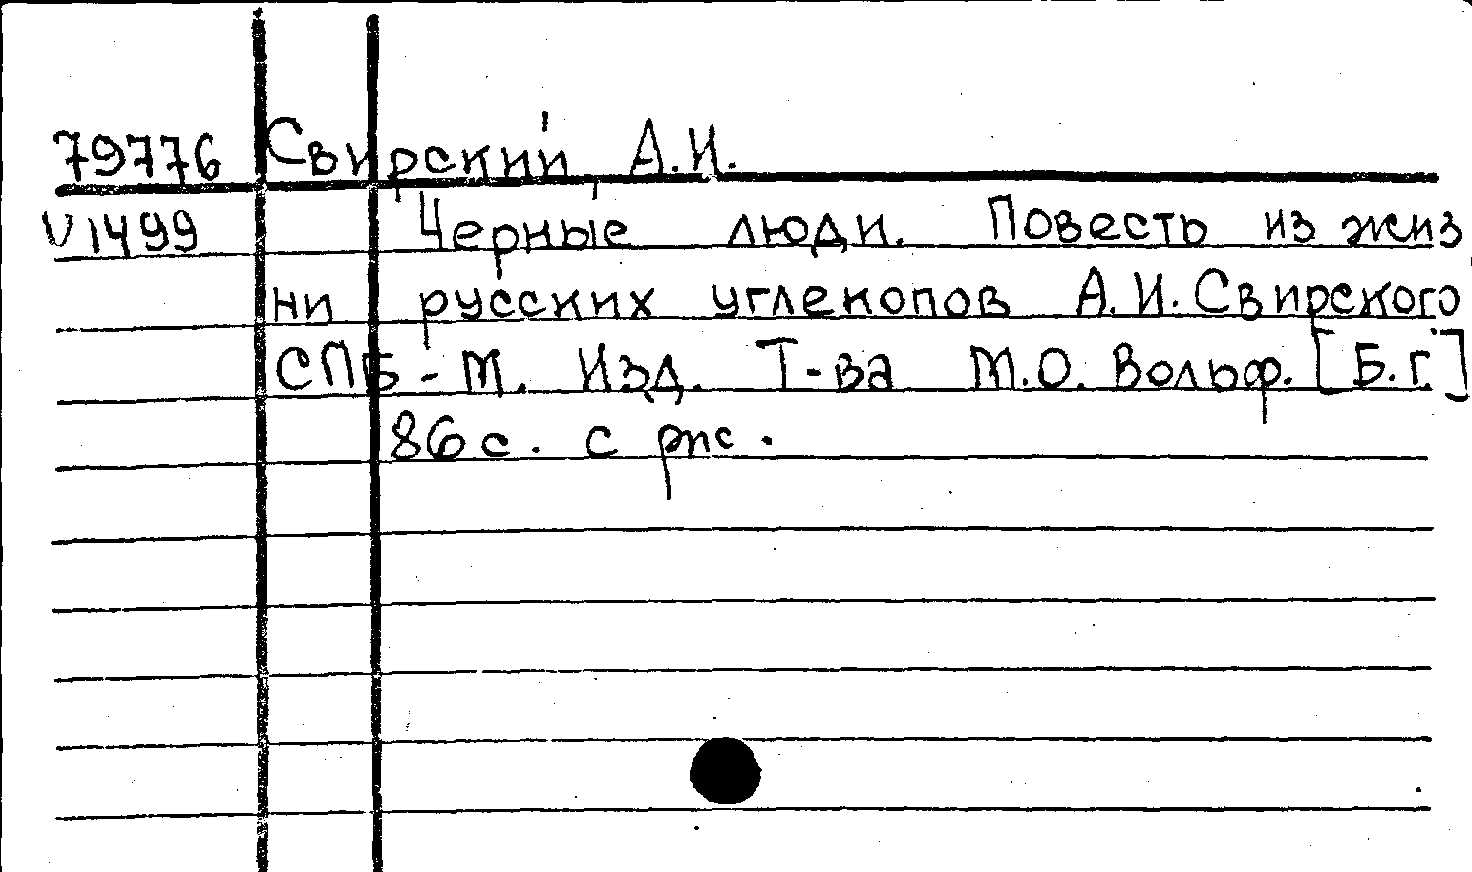 79776 Свирский, А.И.
V 1499 Черные люди. Повесть из жиз
ни русских углекопов А.И. Свирского
СПБ - М. Изд. Т-ва М.О. Вольф. [Б.г.]
86 с. с рис.